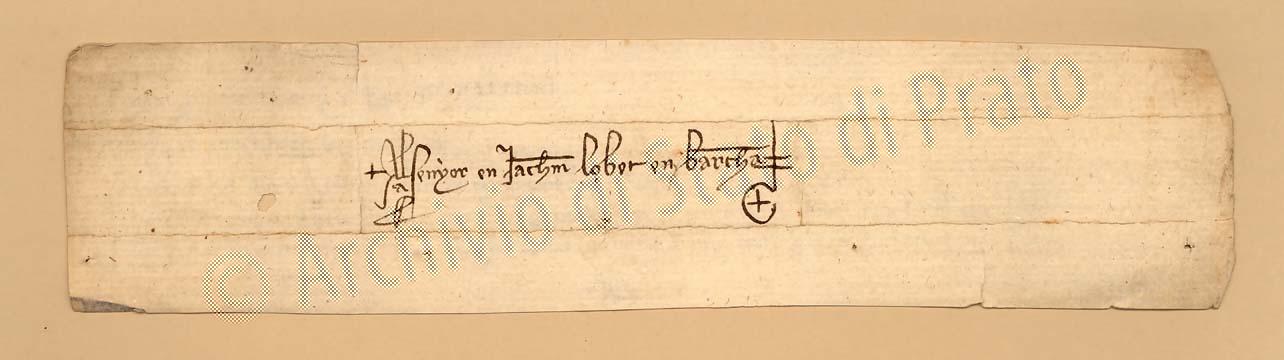 + Al senyer en Jachm lobet en barchᵃ
© Archivio di Stato di Prato